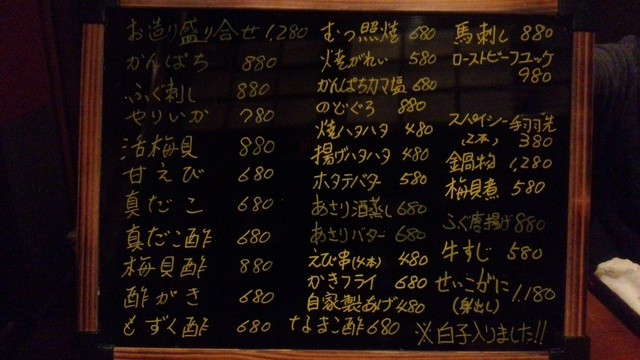 お造り盛り合せ 1,280
かんぱち 880
ふぐ刺し 880
やりいか 780
活梅貝 880
甘えび 680
真だこ 680
真だこ酢 680
梅貝酢 880
酢がき 680
もずく酢 680
むつ照焼 680
焼がれい 580
かんぱちカマ塩 680
のどぐろ 880
焼ハタハタ 480
揚げハタハタ 480
ホタテバター 580
あさり酒蒸し 680
あさりバター 680
えび串(4本) 480
かきフライ 680
自家製あげ 480
なまこ酢 680
馬刺し 880
ローストビーフユッケ
980
スパイシー手羽先
(2本) 380
鍋物 1,280
梅貝煮 580
ふぐ唐揚げ 880
牛すじ 580
せいこがに
(身出し) 1,180
※白子入りました!!